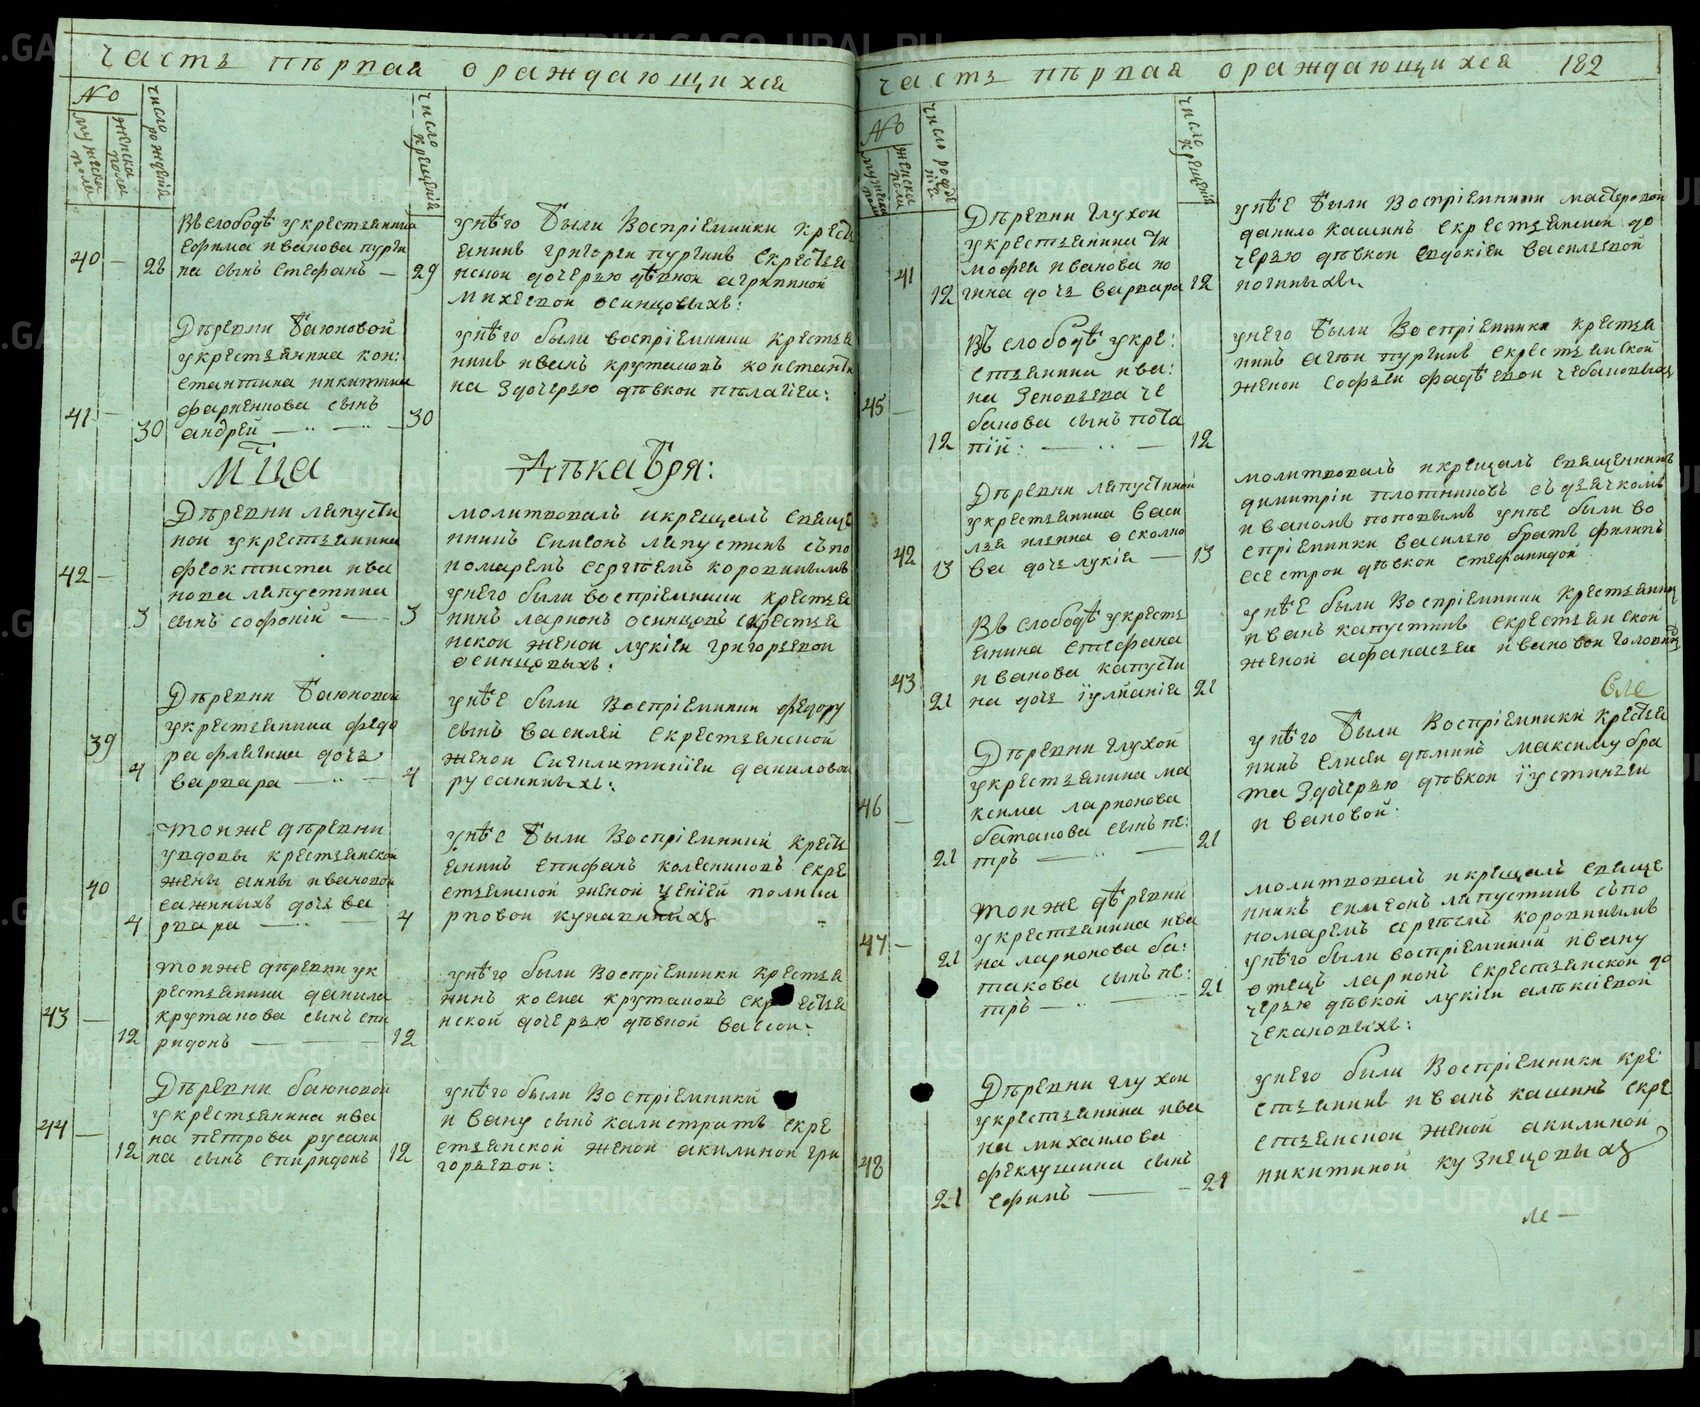 часть пѣрвая ораждающихся
№
мужеска пола
женска пола
число рождѣній
число крещеній
40 — 26
Въ слободѣ у крестьянина
Ефима иванова пурги
на сынъ Стефанъ — 29
у него были Воспріемники крестъ
янинъ григореи пургинъ скрестья
нскои дочерью дѣвкои агрипиной
Михеевои осинцовыхъ:
41 — 30
Дѣревни баюновой
у крестьянина кон:
стантина никитина
фарненнова сынъ
андрей — 30
у нѣго были воспріемники крестья
нинъ иванъ крутаковъ константи
на Здочерью дѣвкои пѣлагіеи:
мца Дѣкабря:
42 — 3
Дѣревни лапусти
нои у крестьянина
феоктиста ива
нова лапустина
сынъ софоній — 3
молитвовалъ и крещалъ свящѣ
нникъ Симеонъ лапустинъ съ по
номаремъ сергѣемъ коровинымъ
у него были воспріемники крестья
нинъ ларионъ осинцовъ скрестья
нскои женои лукіеи григорьевои
осинцовыхъ:
39 4
Дѣревни баюновои
у крестьянина федо
ра флягина дочь
варвара — 4
у нѣе были Воспріемники федору
сынъ василей скрестьянской
женои Сигклитикіеи даниловои
русаниныхъ:
40 4
тои же дѣревни
у вдовы крестьянской
жены анны ивановои
сажиныхъ дочь ва
рвара — 4
у нѣе были Воспріемники кресть
янинъ епифанъ колесниковъ скре
стьянской женой Ксеніей полика
рповои кунавиныхъ
43 — 12
тои же дѣревни у к
рестьянина данила
крутакова сынъ спи
ридонъ — 12
у нѣго были Воспріемники крестья
нинъ косма крутаковъ скрестья
нской дочерью дѣвкой вассои:
44 — 12
Дѣревни баюновои
у крестьянина ива
на петрова русани
на сынъ спиридонъ 12
у нѣго были Воспріемники
ивану сынъ калистратъ скре
стьянской женой акилинои гри
горьевои:
часть пѣрвая ораждающихся 182
№
мужеска пола
женска пола
число рожденій
число крещенія
41 12
Дѣревни глухои
у крестьянина ти
мофея иванова но
гина дочь варвара 12
у нѣе были воспріемники мастеровои
данило кашинъ скрестьянскои до
черью дѣвкои евдокіеи василевой
ногиныхъ
45 — 12
Въ слободѣ у кре:
стьянина ива:
на Зеновьева че
банова сынъ пота
пій: — 12
у него были Воспріемники крестья
нинъ агѣи пургинъ скрестьянской
женои софьеи фадѣевои чебановыхъ
42 13
Дѣревни лапустиной
у крестьянина васи
лья илеина осколко
ва дочь лукія — 13
молитвовалъ и крещалъ священникъ
димитріи плотниковъ съ дьячкомъ
иваномъ поповымъ у нѣе были во
спріемники василею братъ филипъ
ссестрои дѣвкои стефанидой
43 21
Въ слободѣ у кресть
янина стефана
иванова капусти
на дочь іуліанія 21
у нѣе были Воспріемники крестьянинъ
иванъ капустинъ скрестьянской
женой афанасьеи ивановои головиныхъ
46 — 21
Дѣревни глухой
у крестьянина ма
ксима ларионова
батакова сынъ пе:
тръ — 21
у нѣго были Воспріемники крестья
нинъ елисеи дѣминъ максиму бра
та Здочерью дѣвкои іустиньеи
ивановой:
47 — 21
тои же дѣревни
у крестьянина ива
на ларионова ба:
такова сынъ пе:
тръ — 21
молитвовалъ и крещалъ свяще
нникъ симеонъ лапустинъ съ по
номаремъ сергѣемъ коровинымъ
у нѣго были воспріемники ивану
отецъ ларионъ скрестьянской до
черью дѣвкой лукіеи алѣксіевой
чекановыхъ:
48 21
Дѣревни глухои
у крестьянина ива
на михаилова
феклушина сынъ
ефимъ — 21
у него были Воспріемники кре
стьянинъ иванъ кашинъ скре
стьянскои женой акилиной
никитиной кузнецовыхъ
METRIKI.GASO-URAL.RU